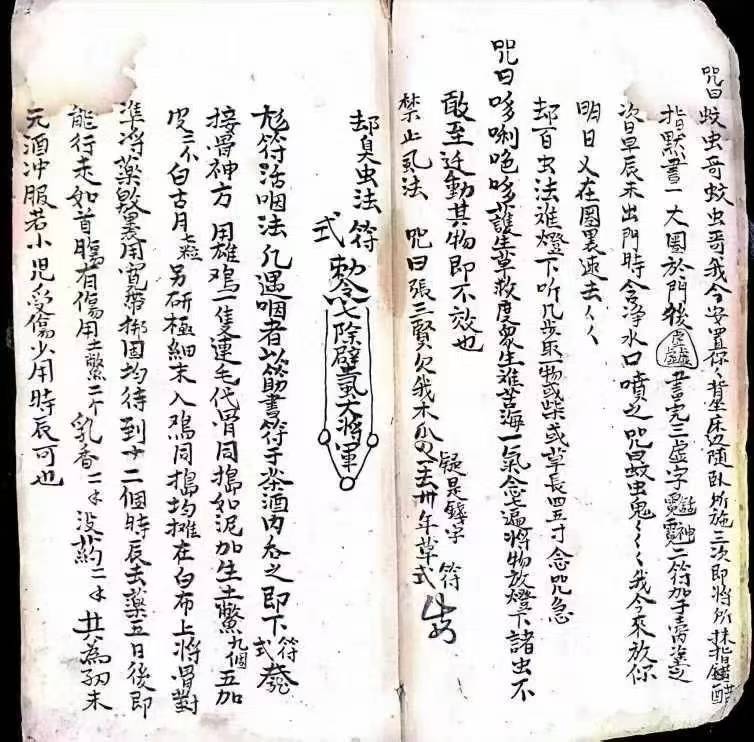 咒曰蚊虫哥蚊虫哥我今安置你〻背坐床边随卧所施三次即将所抹指
指默書一大圈於門後 書完三虚字 二符加于
次日早辰未出門時含净水口噴之咒曰蚊虫鬼〱〱我今來放你
明日又在圈裏速去〱
却百虫法准燈下听几步取一物或柴或草長四五寸念咒急
咒曰哆唎唵哆護生草救度衆生难苦海一氣念七遍将物放燈下諸虫不
敢至近動其物即不效也
禁止虱法 咒曰張三賢欠我木 卅年草式 疑是錢字 符
却臭虫法 符式
勅令七除壁虱大將軍
符活咽法凡遇咽者以筯書符于茶酒内吞之即下 符式
接骨神方 用雄鸡一隻連毛代骨同搗如泥加生土鱉九個五加
皮三 白古月七粒另研極細末入鸡同搗均攤在白布上將骨對
準将藥敷裹用寬帶綁固均待到十二個時辰去藥五日後即
能行走如首傷有傷用土鱉二个乳香二 没药二 共為細末
元酒冲服若小児受傷少用時辰可也